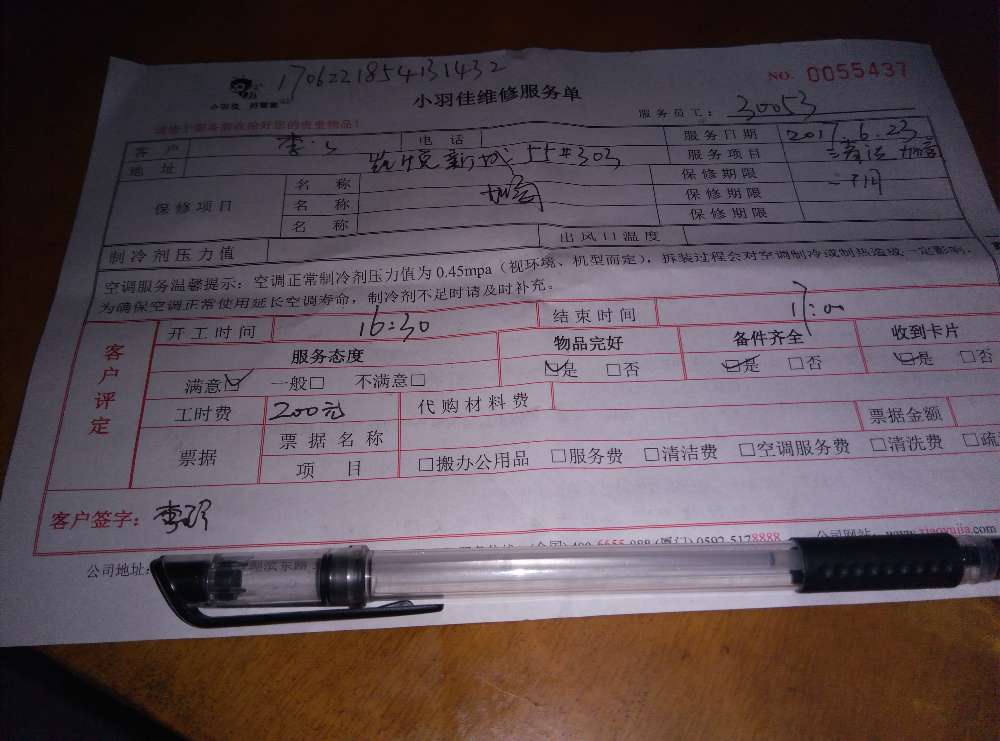 1706221854131432
NO. 0055437
小羽佳 好管家
小羽佳维修服务单
服务员工: 30053
客户 李 电话 服务日期 2017.6.23
地址 凯悦新城55#303 服务项目 清洗加氟
保修项目 名称 加氟 保修期限 一个月
名称 保修期限
名称 保修期限
制冷剂压力值 出风口温度
空调服务温馨提示:空调正常制冷剂压力值为0.45mpa(视环境、机型而定),拆装过程会对空调制冷或制热造成一定影响,
为确保空调正常使用延长空调寿命,制冷剂不足时请及时补充。
客户评定
开工时间 16:30 结束时间 17:00
服务态度 物品完好 备件齐全 收到卡片
满意☑ 一般□ 不满意□ ☑是 □否 ☑是 □否 ☑是 □否
工时费 200元 代购材料费
票据 票据名称 票据金额
项目 □搬办公用品 □服务费 □清洁费 □空调服务费 □清洗费 □疏
客户签字:
(厦门)0592-5178888 公司网站:www.xiaoyujia.com
公司地址: